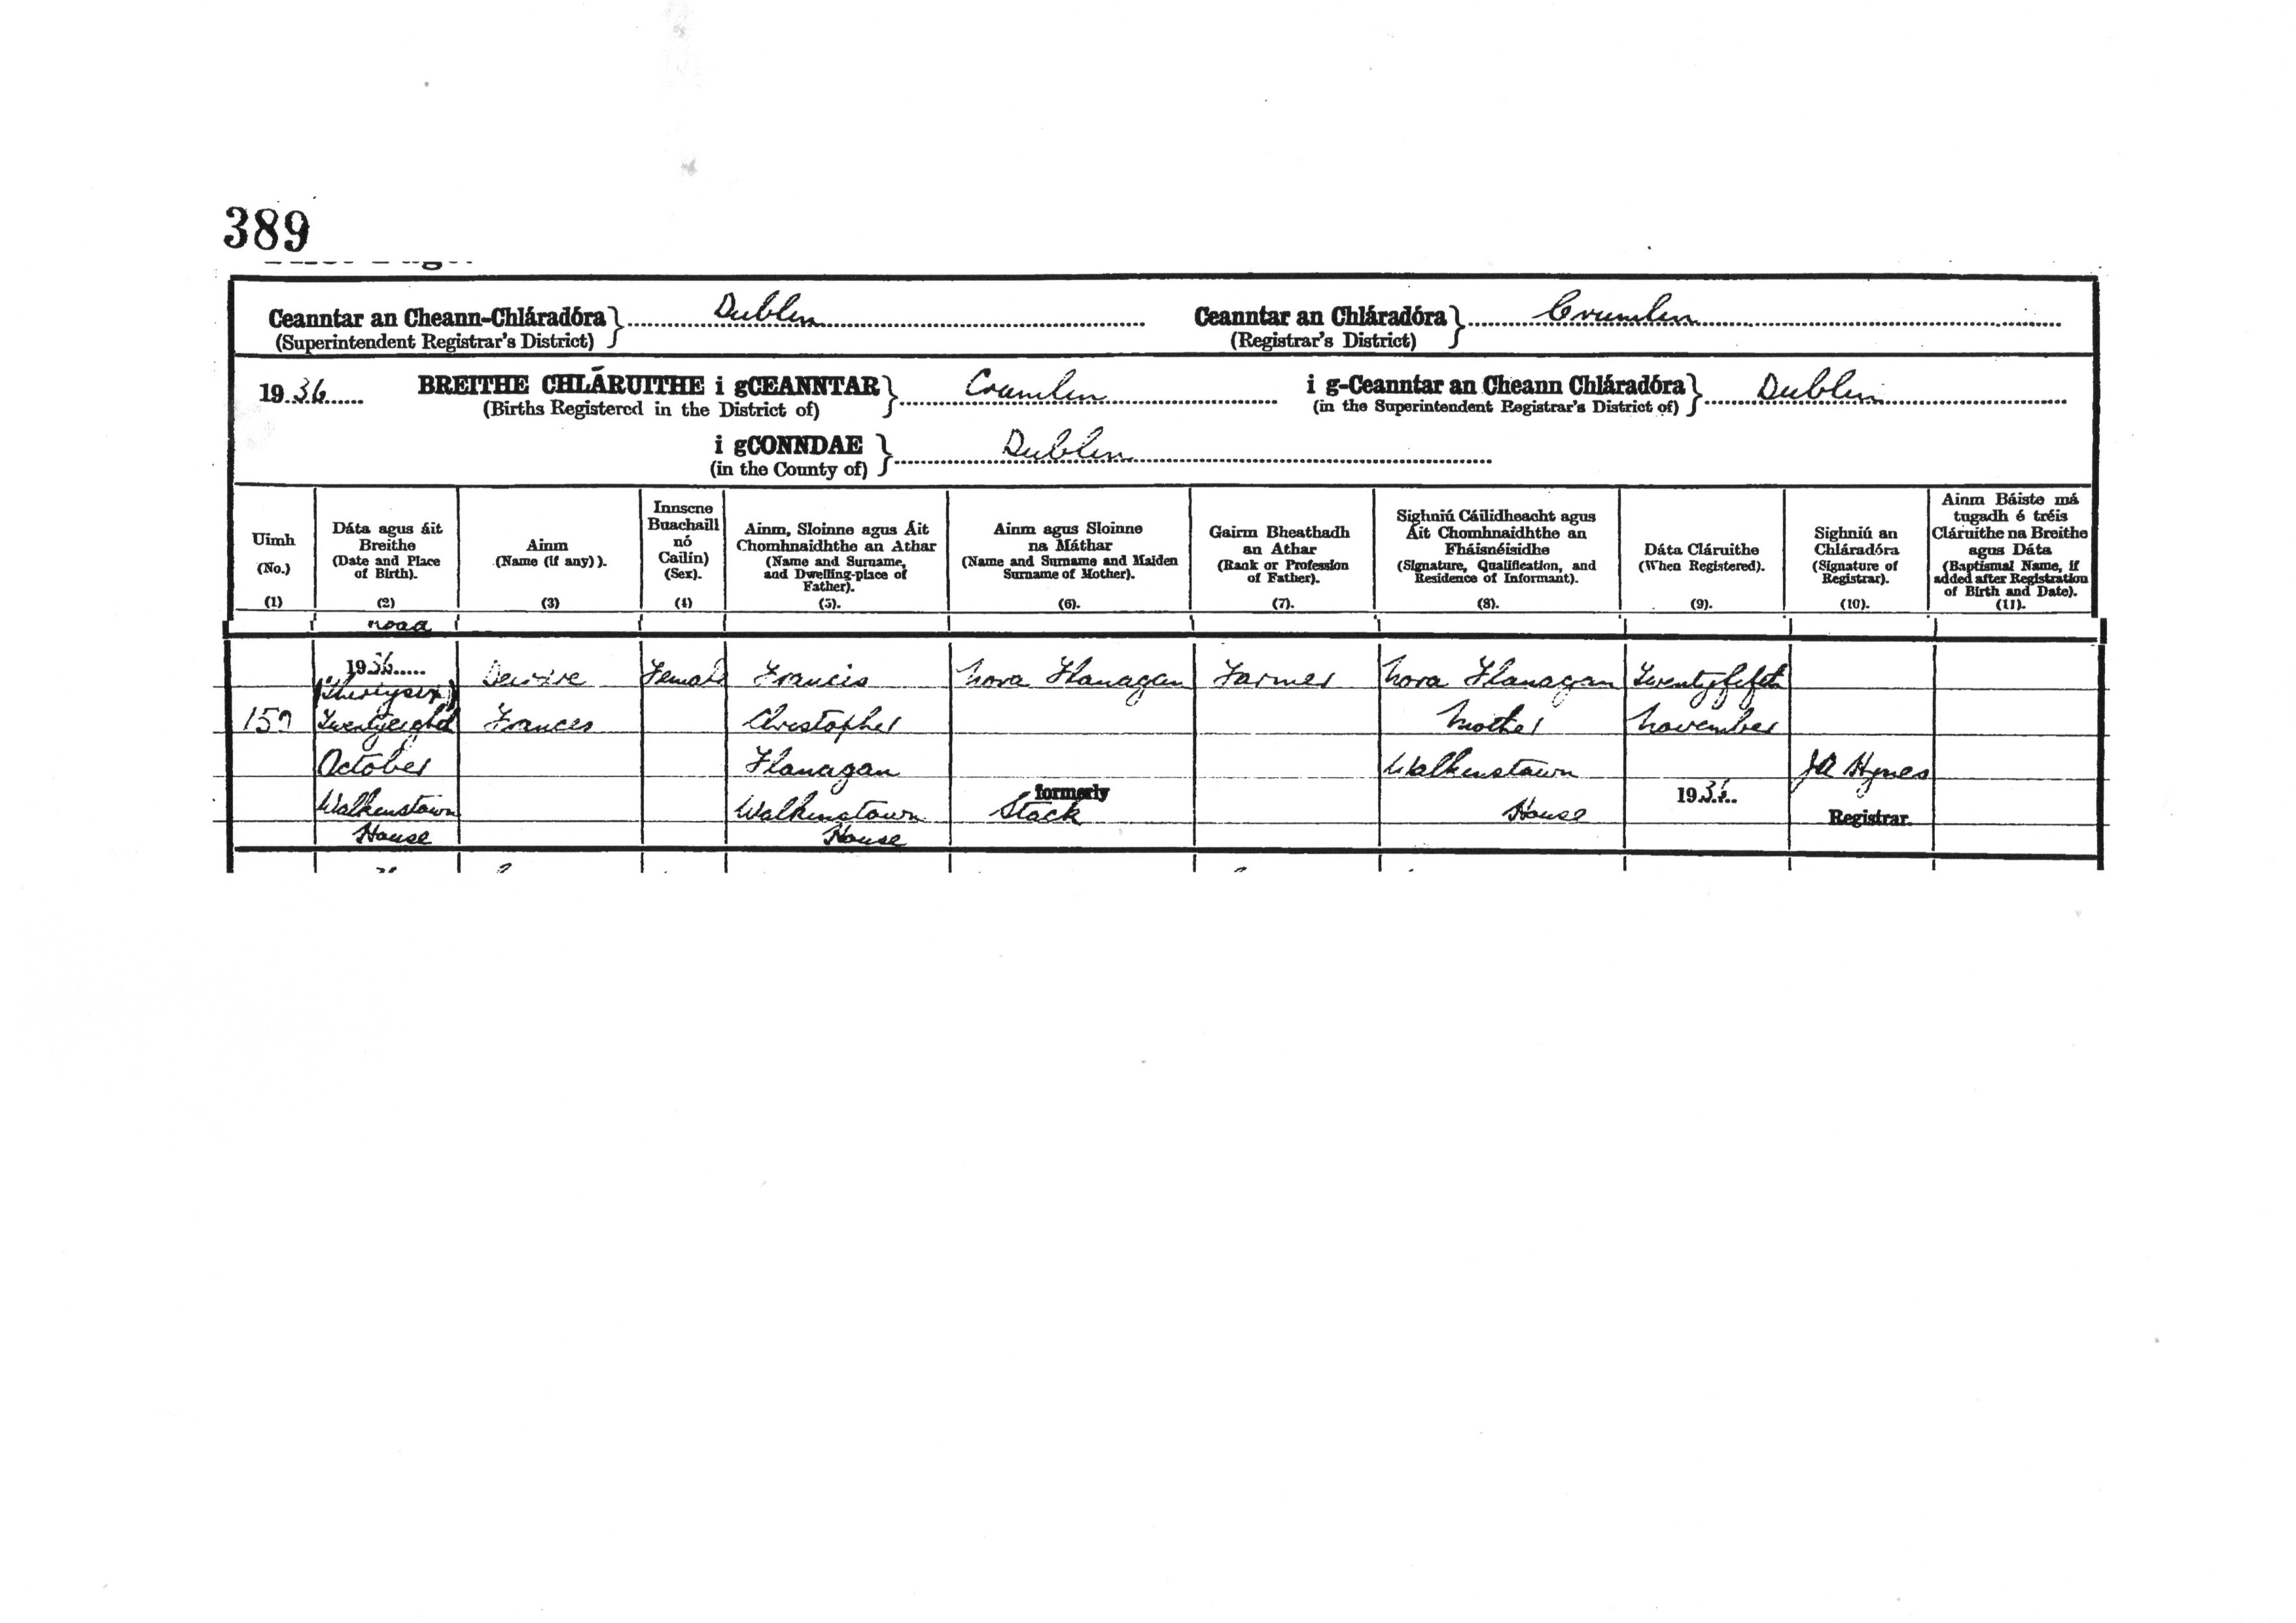 389
Ceanntar an Cheann-Chláradóra} Dublin Ceanntar an Chláradóra} Crumlin
(Superintendent Registrar's District) (Registrar's District)
1936 BREITHE CHLÁRUITHE i gCEANNTAR} Crumlin i g-Ceanntar an Cheann Chláradóra} Dublin
(Births Registered in the District of) (in the Superintendent Registrar's District of)
i gCONNDAE} Dublin
(in the County of)
Uimh
(No.)
(1)
Dáta agus áit
Breithe
(Date and Place
of Birth).
(2)
Ainm
(Name (if any)).
(3)
Innscne
Buachaill
nó
Cailín)
(Sex).
(4)
Ainm, Sloinne agus Áit
Chomhnaidhthe an Athar
(Name and Surname,
and Dwelling-place of
Father).
(5).
Ainm agus Sloinne
na Máthar
(Name and Surname and Maiden
Surname of Mother).
(6).
Gairm Bheathadh
an Athar
(Rank or Profession
of Father).
(7).
Sighniú Cáilidheacht agus
Áit Chomhnaidhthe an
Fháisnéisidhe
(Signature, Qualification, and
Residence of Informant).
(8).
Dáta Cláruithe
(When Registered).
(9).
Sighniú an
Chláradóra
(Signature of
Registrar).
(10).
Ainm Báiste má
tugadh é tréis
Cláruithe na Breithe
agus Dáta
(Baptismal Name, if
added after Registration
of Birth and Date).
(11).
road
1936
(thirtysix)
Twentyeighth
October
Walkinstown
House
Frances
Female
Francis
Christopher
Flanagan
Walkinstown
House
Nora Flanagan
formerly
Stack
Farmer
Nora Flanagan
Mother
Walkinstown
House
Twentyfifth
November
1936
JA Hynes
Registrar.